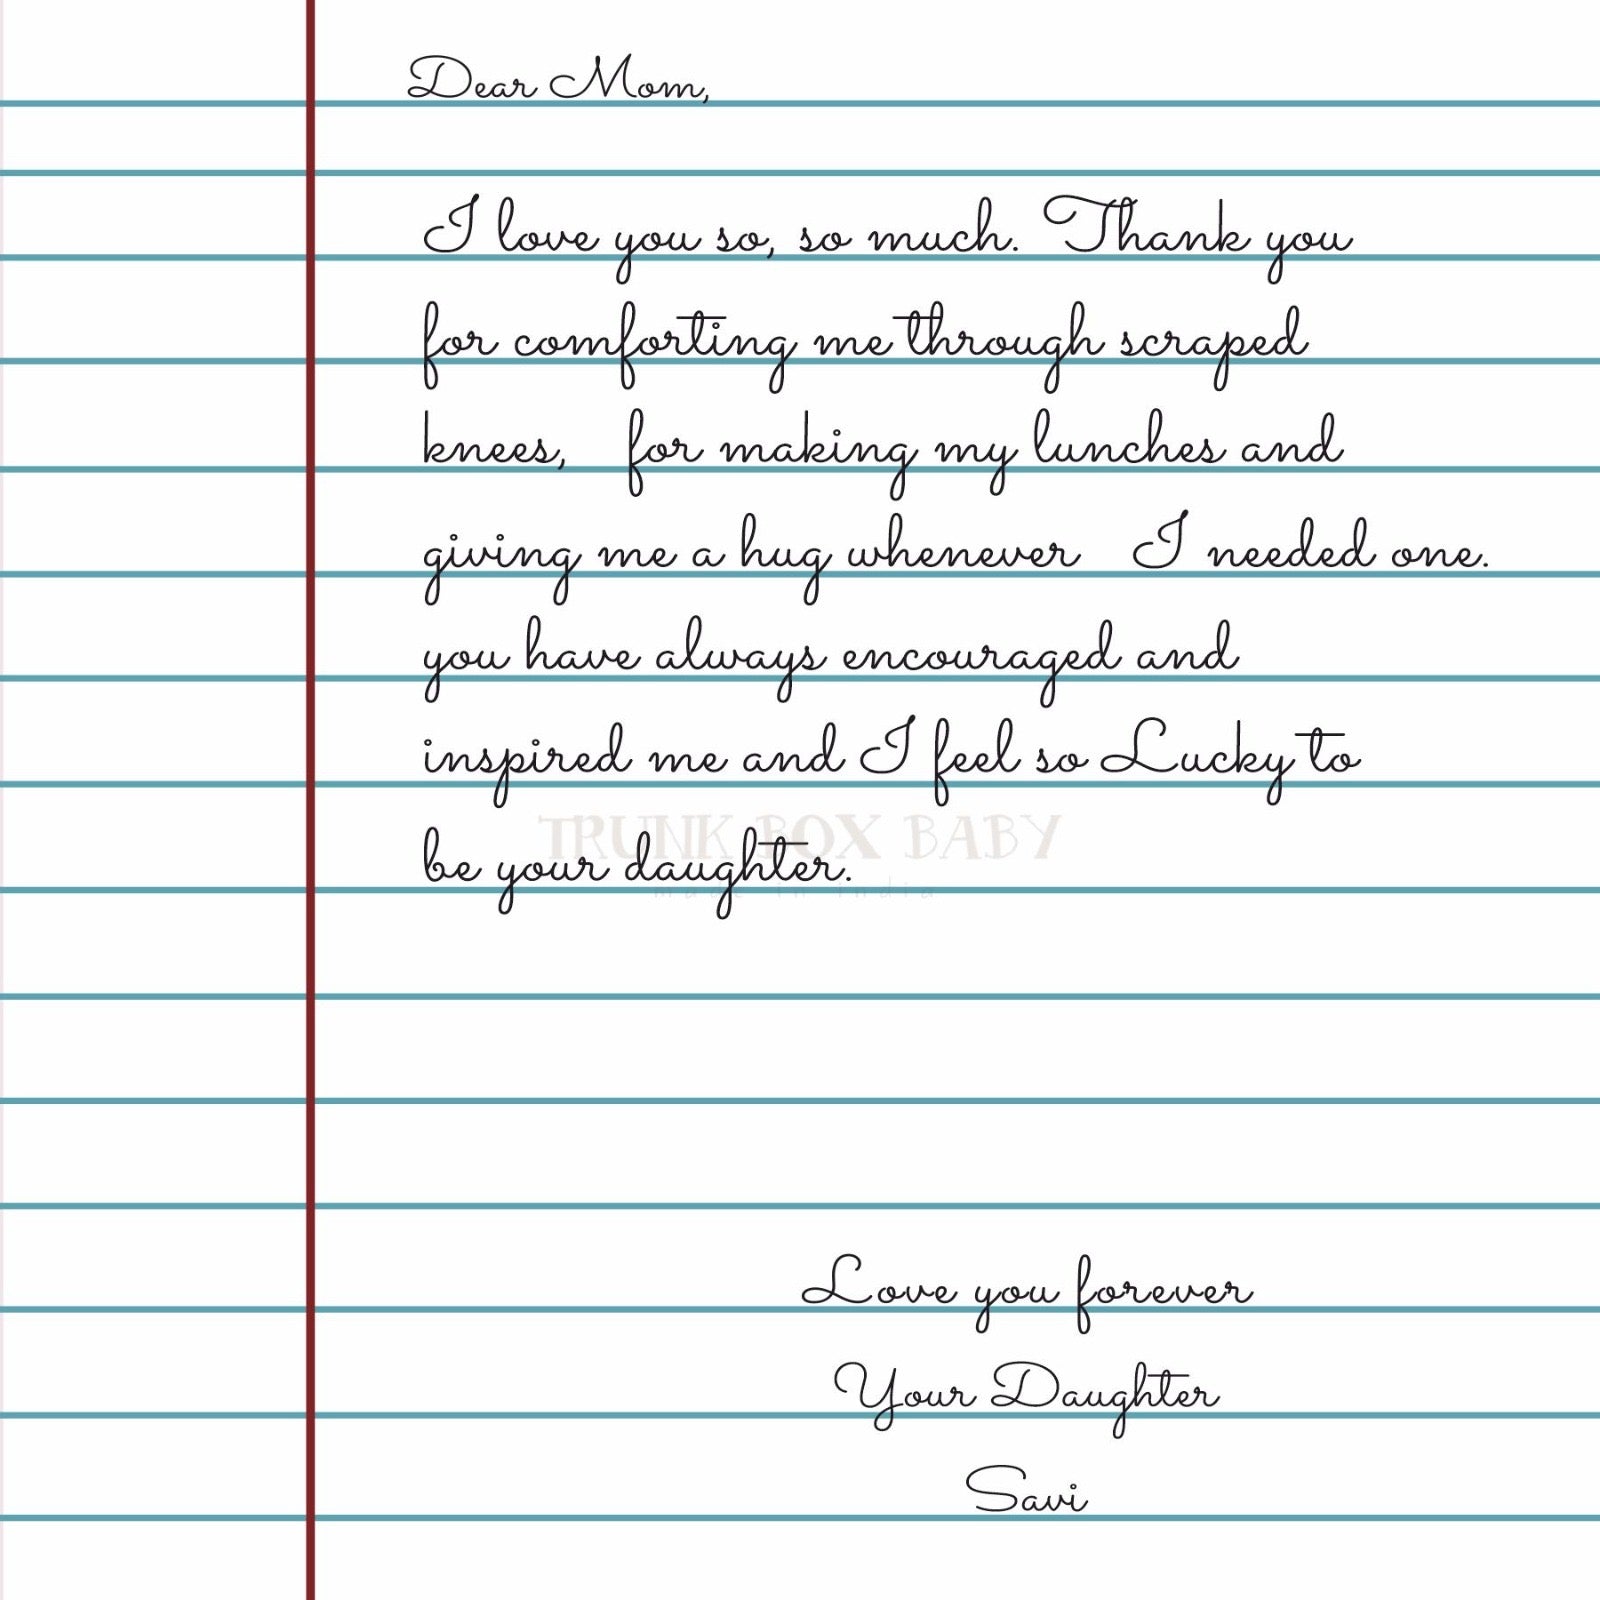 Dear Mom,
I love you so, so much. Thank you
for comforting me through scraped
knees, for making my lunches and
giving me a hug whenever I needed one.
you have always encouraged and
inspired me and I feel so Lucky to
TRUNK BOX BABY
be your daughter.
made in india
Love you forever
Your Daughter
Savi